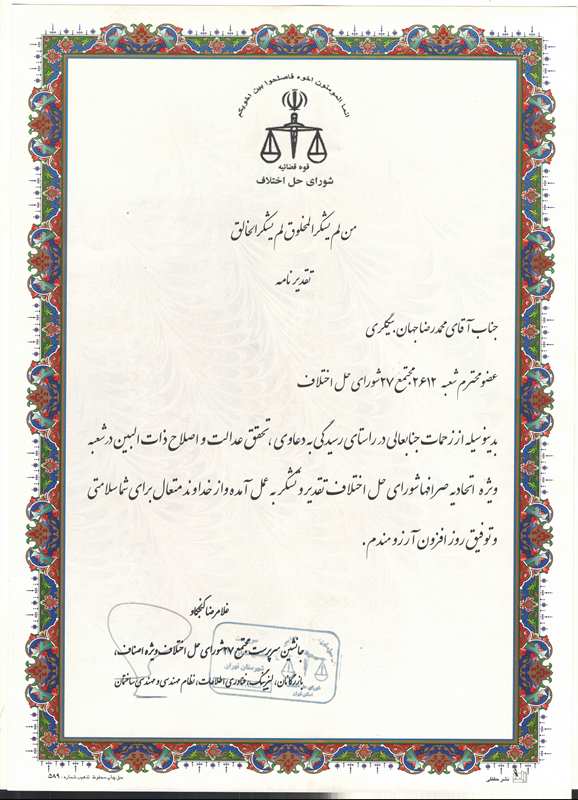 انما المومنون اخوه فاصلحوا بین اخویکم
قوه قضائیه
شورای حل اختلاف
من لم یشکر المخلوق لم یشکر الخالق
تقدیرنامه
جناب آقای محمدرضا جهان بیگلری
عضو محترم شعبه ۲۶۱۲ مجتمع ۲۷ شورای حل اختلاف
بدینوسیله از زحمات جنابعالی در راستای رسیدگی به دعاوی، تحقق عدالت و اصلاح ذات البین در شعبه
ویژه اتحادیه صرافها شورای حل اختلاف تقدیر و تشکر به عمل آمده و از خداوند متعال برای شما سلامتی
و توفیق روز افزون آرزومندم.
غلامرضا گنجکاو
جانشین سرپرست مجتمع ۲۷ شورای حل اختلاف ویژه اصناف،
بازرگانان، لیزینگ، فناوری اطلاعات، نظام مهندسی و مهندسی ساختمان
شهرستان تهران
حق چاپ محفوظ تذهیب شماره: ۵۸۹
نشر حقایقی